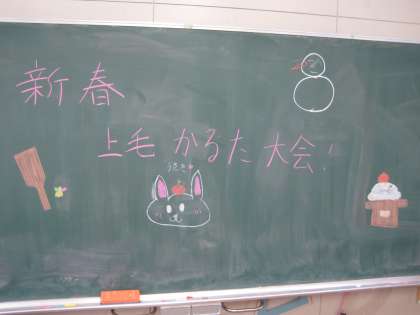 新春
上毛かるた大会!
うさぎ